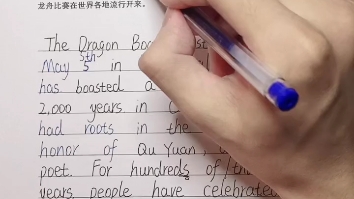 龙舟比赛在世界各地流行开来。
The Dragon Boa
May 5th in
has boasted a
2,000 years in
had roots in the
honor of Qu Yuan,
poet. For hundreds of
years people have celebrated